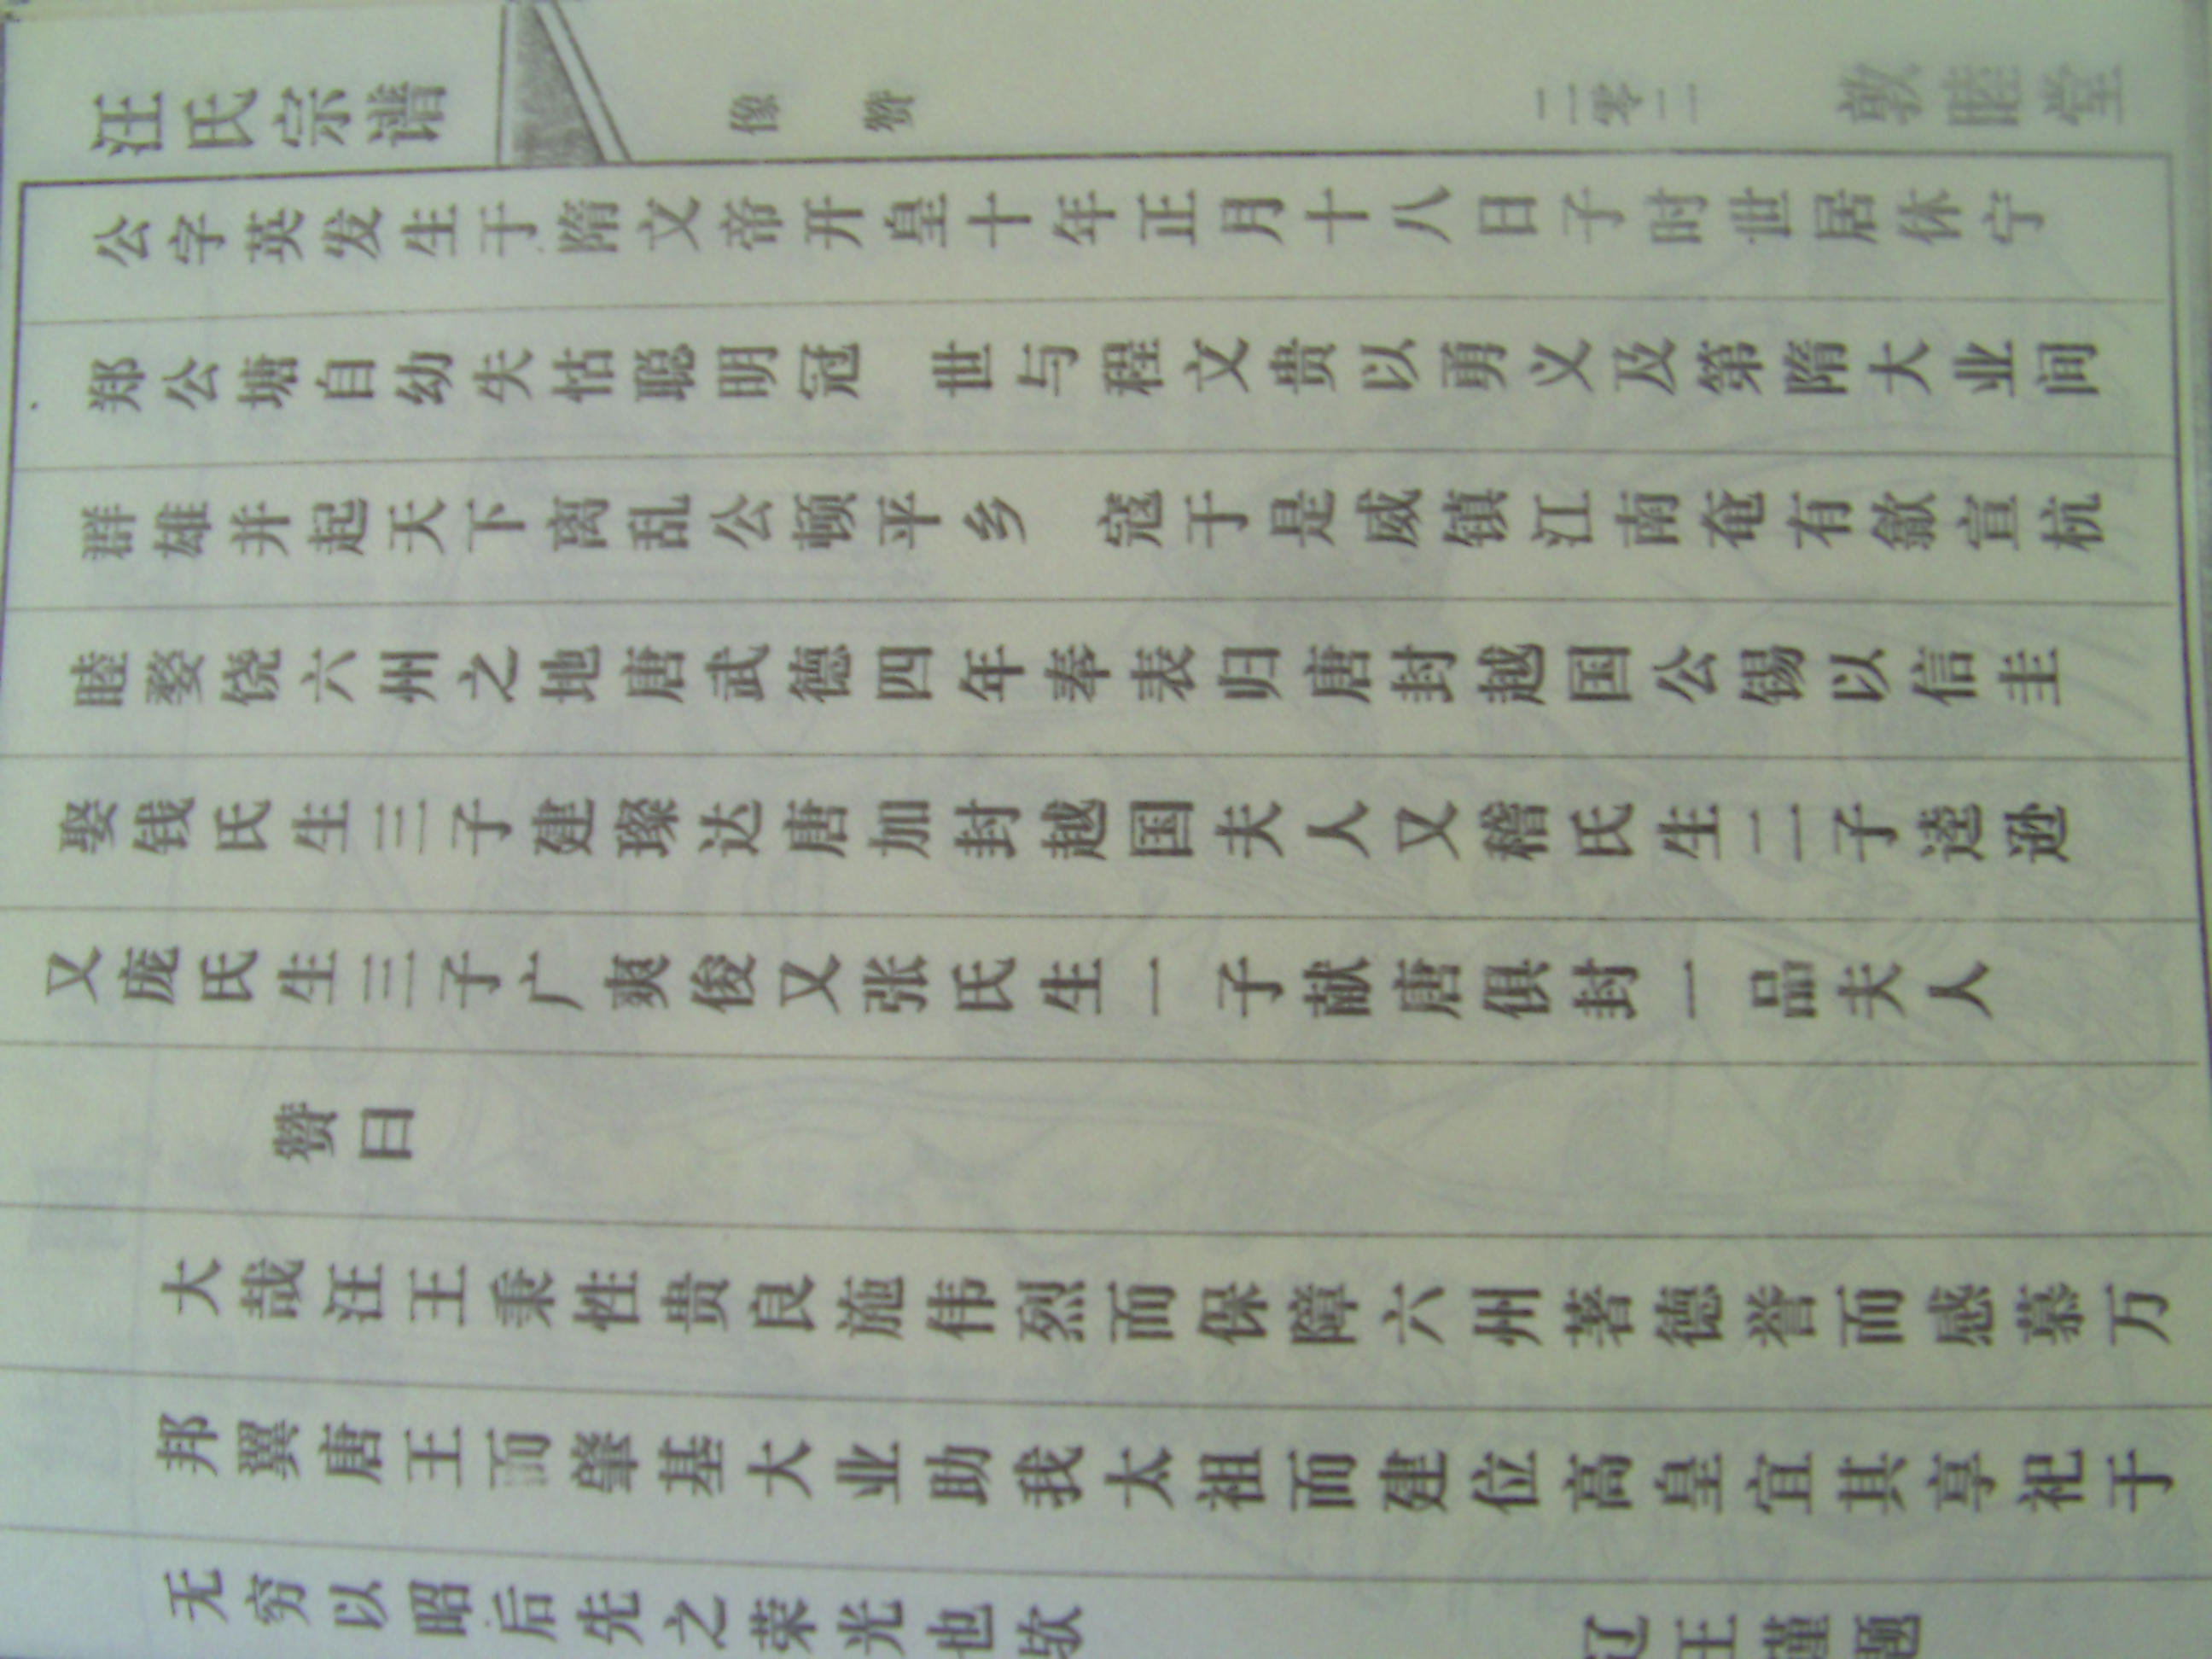 汪氏宗谱
像 赞
二零二
敦睦堂
公字英发生于隋文帝开皇十年正月十八日子时世居休宁
郑公塘自幼失怙聪明冠 世与程文贵以勇义及第隋大业间
群雄并起天下离乱公顿平乡 寇于是威镇江南奄有歙宣杭
睦婺饶六州之地唐武德四年奉表归唐封越国公锡以信圭
娶钱氏生三子建璨达唐加封越国夫人又稽氏生二子逵逊
又庞氏生三子广爽俊又张氏生一子献唐俱封一品夫人
赞曰
大哉汪王秉性贵良施伟烈而保障六州著德誉而感慕万
邦翼唐王而肇基大业助我太祖而建位高皇宜其享祀于
无穷以昭后先之荣光也欤
辽王瑾题